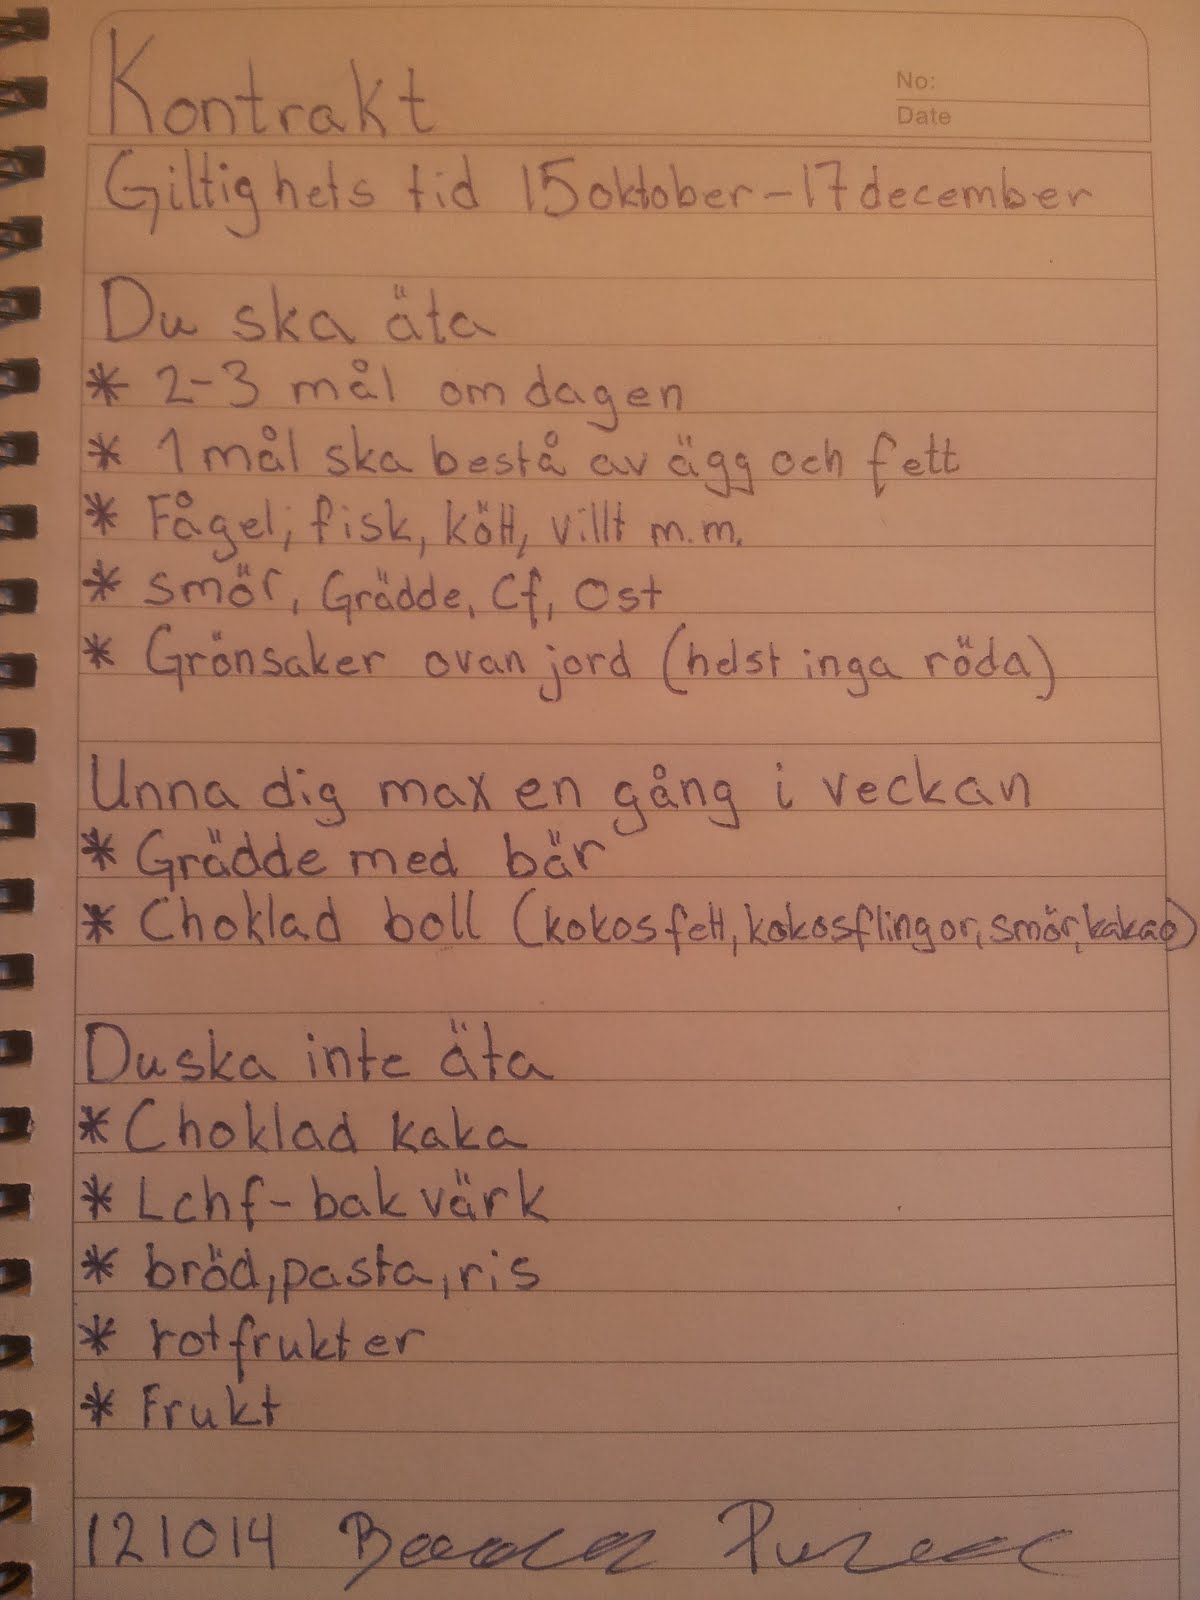 Kontrakt
No:
Date
Giltighets tid 15 oktober - 17 december
Du ska äta
* 2-3 mål om dagen
* 1 mål ska bestå av ägg och fett
* Fågel, fisk, kött, villt m.m.
* smör, Grädde, Cf, Ost
* Grönsaker ovan jord (helst inga röda)
Unna dig max en gång i veckan
* Grädde med bär
* Choklad boll (kokosfett, kokosflingor, smör, kakao)
Du ska inte äta
* Choklad kaka
* Lchf-bak värk
* bröd, pasta, ris
* rotfrukter
* Frukt
121014